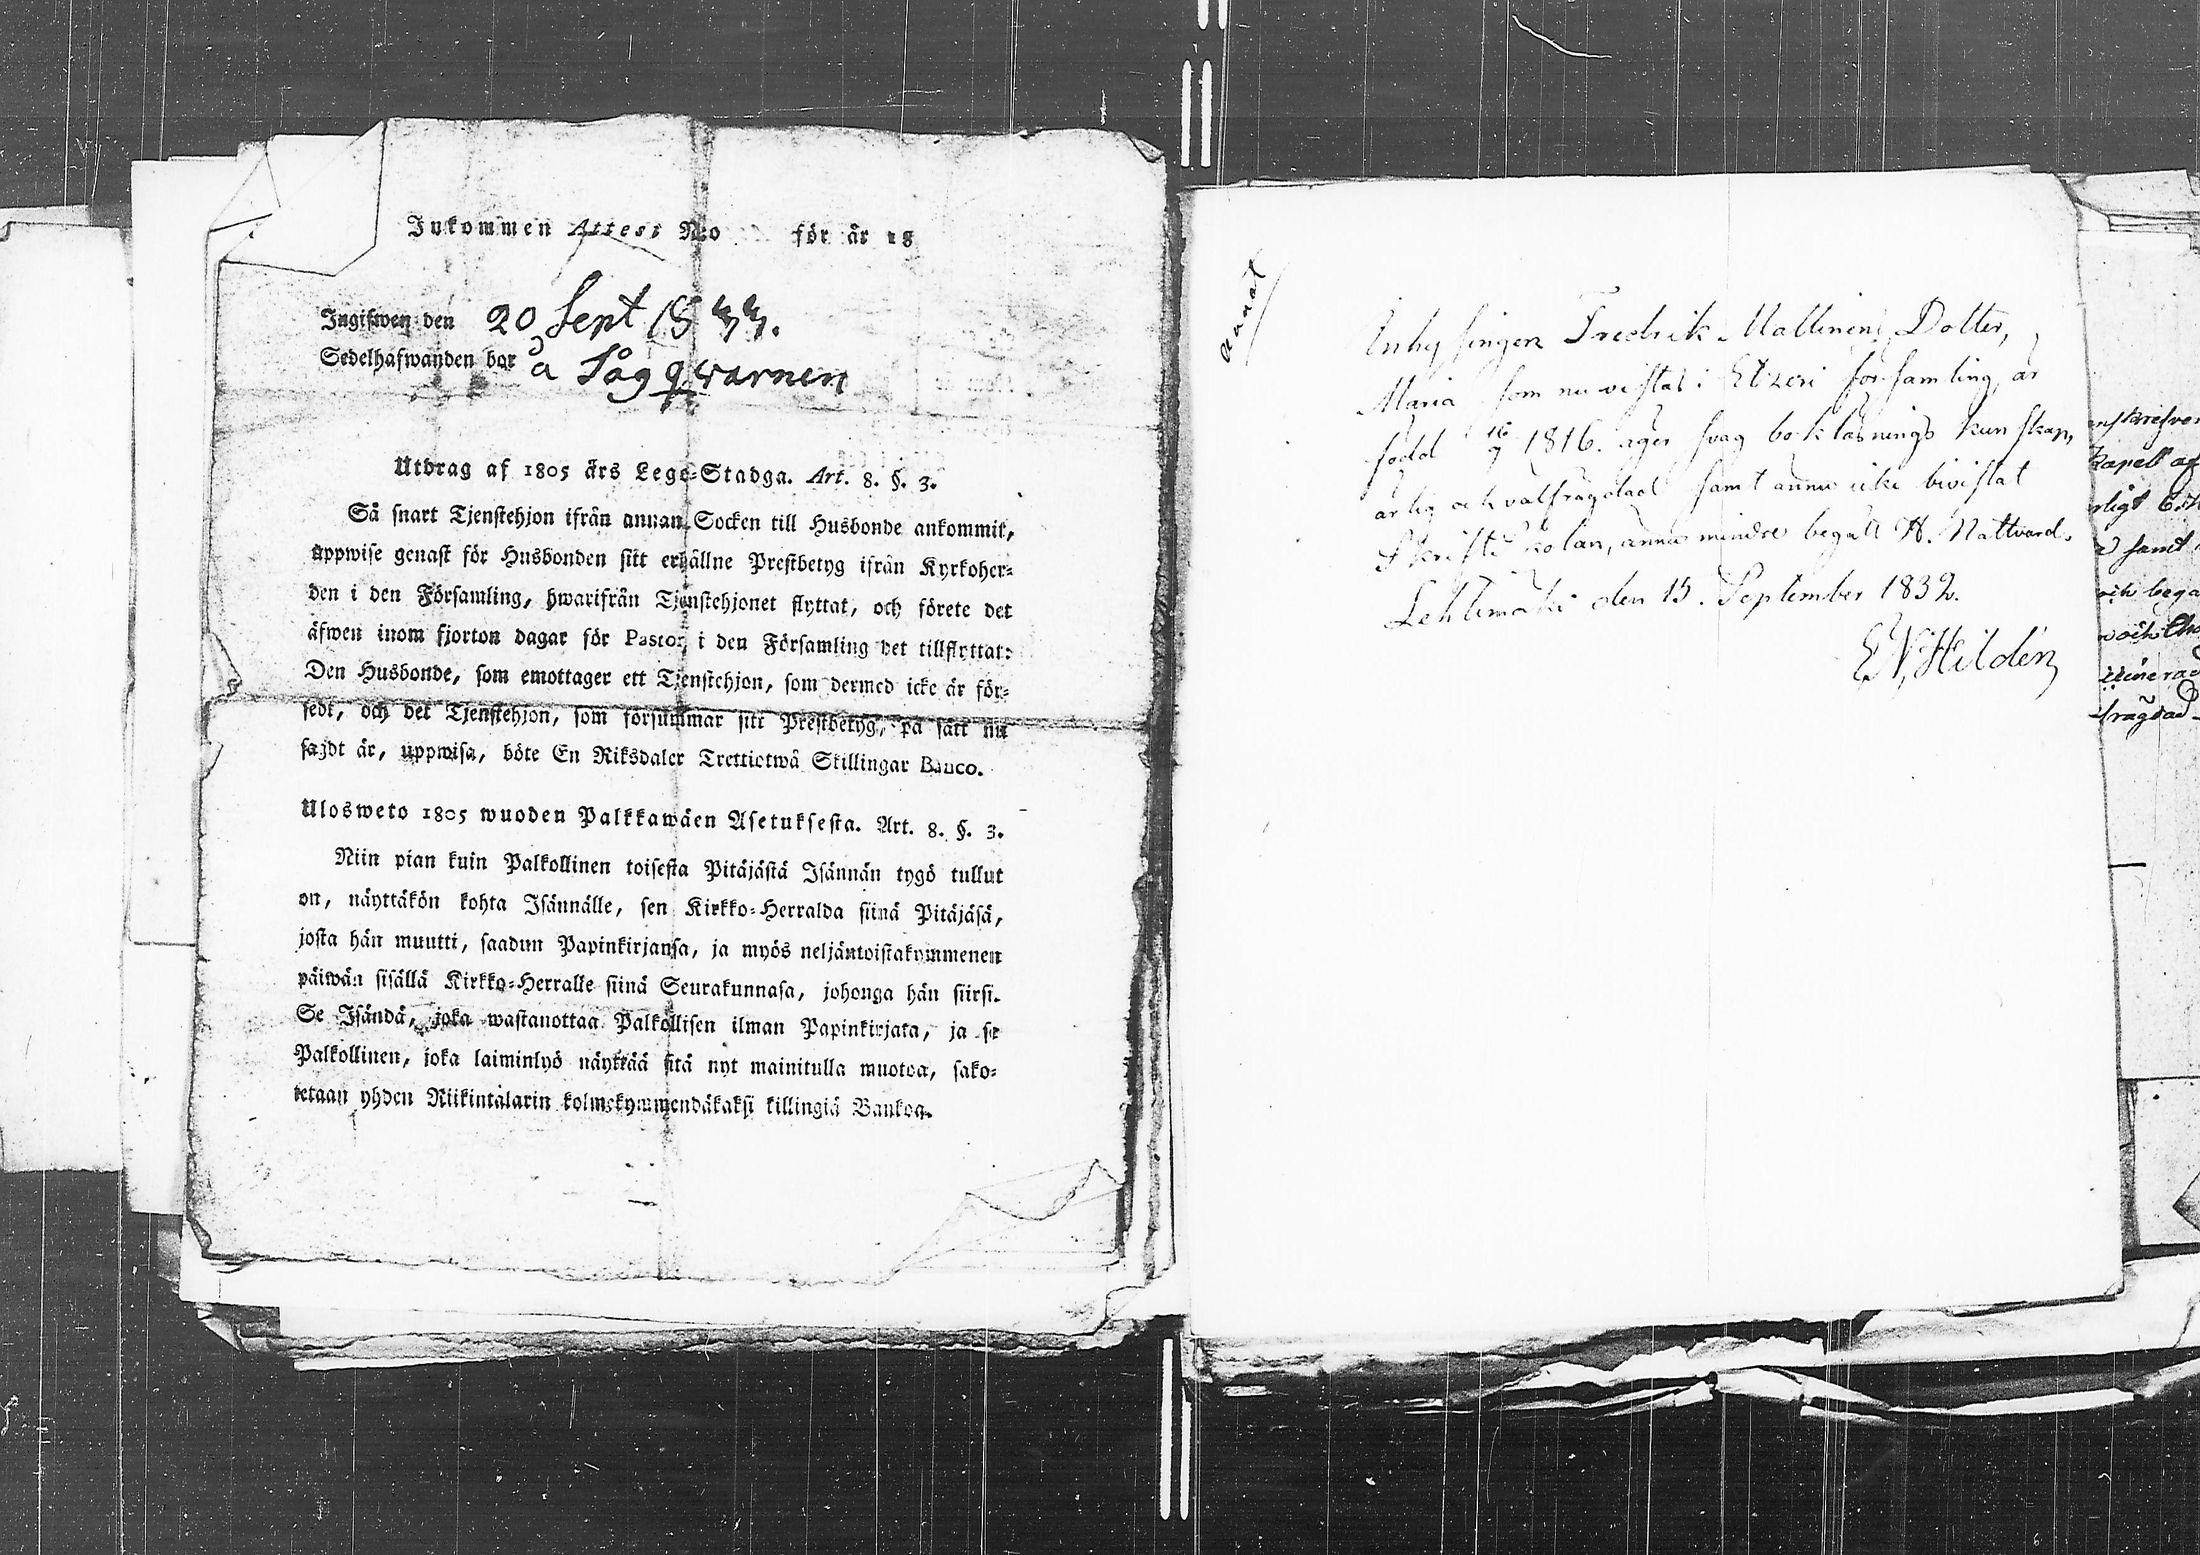 Inkommen Attest N:o för år 18
Ingifwen den 20 Sept 1844.
Sedelhafwanden bor å Sågqvarnen
Utdrag af 1805 års Lego-Stadga. Art. 8. §. 3.
Så snart Tjenstehjon ifrån annan Socken till Husbonde ankommit,
uppwise genast för Husbonden sitt erhållne Prestbetyg ifrån Kyrkoher-
den i den Församling, hwarifrån Tjenstehjonet flyttat, och förete det
äfwen inom fjorton dagar för Pastor i den Församling det tillflyttat:
Den Husbonde, som emottager ett Tjenstehjon, som dermed icke är för-
sedt, och det Tjenstehjon, som försummar sitt Prestbetyg, på sätt nu
sagdt är, uppwisa, böte En Riksdaler Trettiotwå Skillingar Banco.
Ulosweto 1805 wuoden Palkkawäen Asetuksesta. Art. 8. §. 3.
Niin pian kuin Palkollinen toisesta Pitäjästä Isännän tygö tullut
on, näyttäkön kohta Isännälle, sen Kirkko-Herralda siinä Pitäjäsä,
josta hän muutti, saadun Papinkirjansa, ja myös neljäntoistakymmenen
päiwän sisällä Kirkko-Herralle siinä Seurakunnasa, johonga hän siirsi.
Se Isändä, joka wastanottaa Palkollisen ilman Papinkirjata, ja se
Palkollinen, joka laiminlyö näyttää sitä nyt mainitulla muotoa, sako-
tetaan yhden Riikintalarin kolmekymmendäkaksi killingiä Bankoa.
Inhysingen Fredrik Mallinens Dotter,
Maria som nu vistas i Etzeri församling, är
född 16/9 1816. äger svag bokläsnings kunskap,
ärlig och välfrägdad samt ännu icke bivistat
Skriftskolan, ännu mindre begått H. Nattvard.
Lehtimäki den 15. September 1832.
E N Hildén
kapell af
samt
och begå